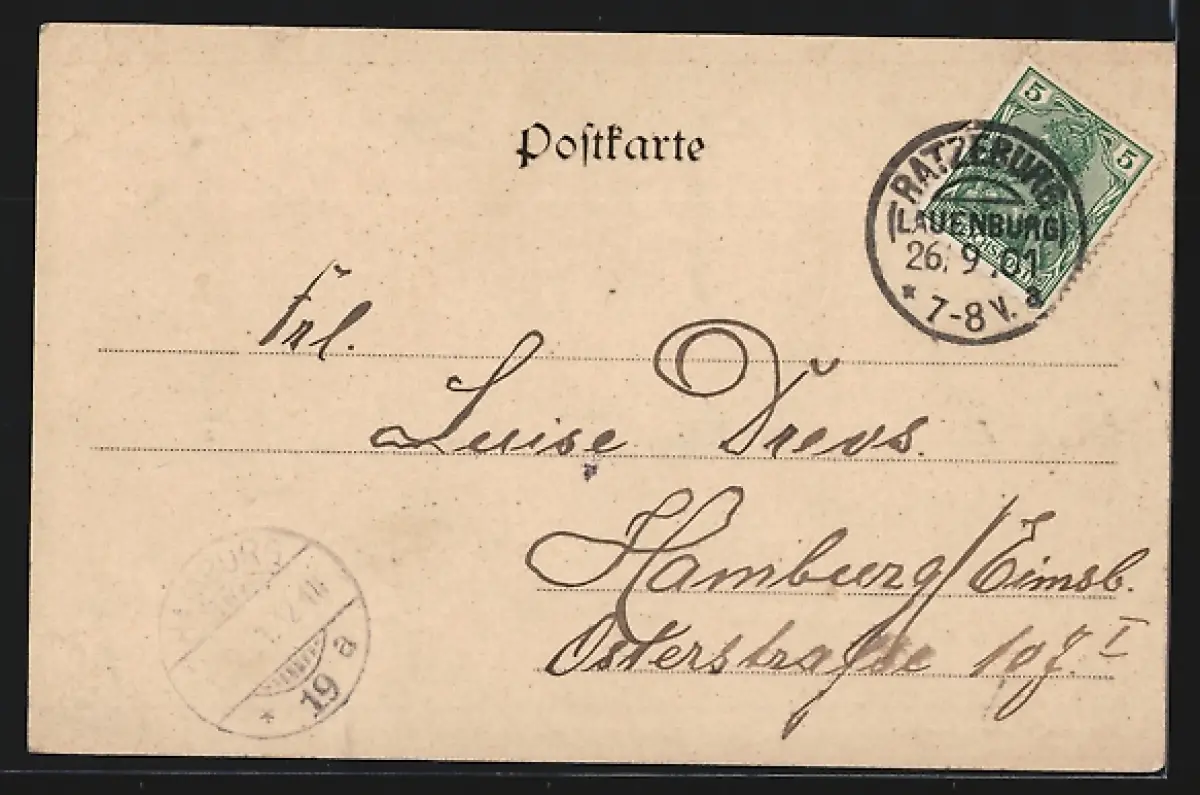 Postkarte
5 5
RATZEBURG
(LAUENBURG)
26. 9. 01
* 7-8 V. a
Frl.
Luise Drevs.
Hamburg/Eimsb.
Osterstraße I
HAMBURG
* 19 a